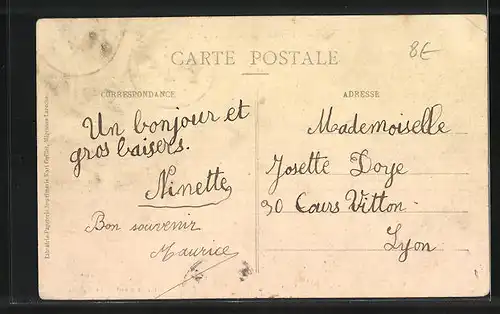 8E
CARTE POSTALE
CORRESPONDANCE
ADRESSE
Un bonjour et
gros baisers.
Ninette
Bon souvenir
Maurice
Mademoiselle
Josette Doye
30 Cours Vitton
Lyon